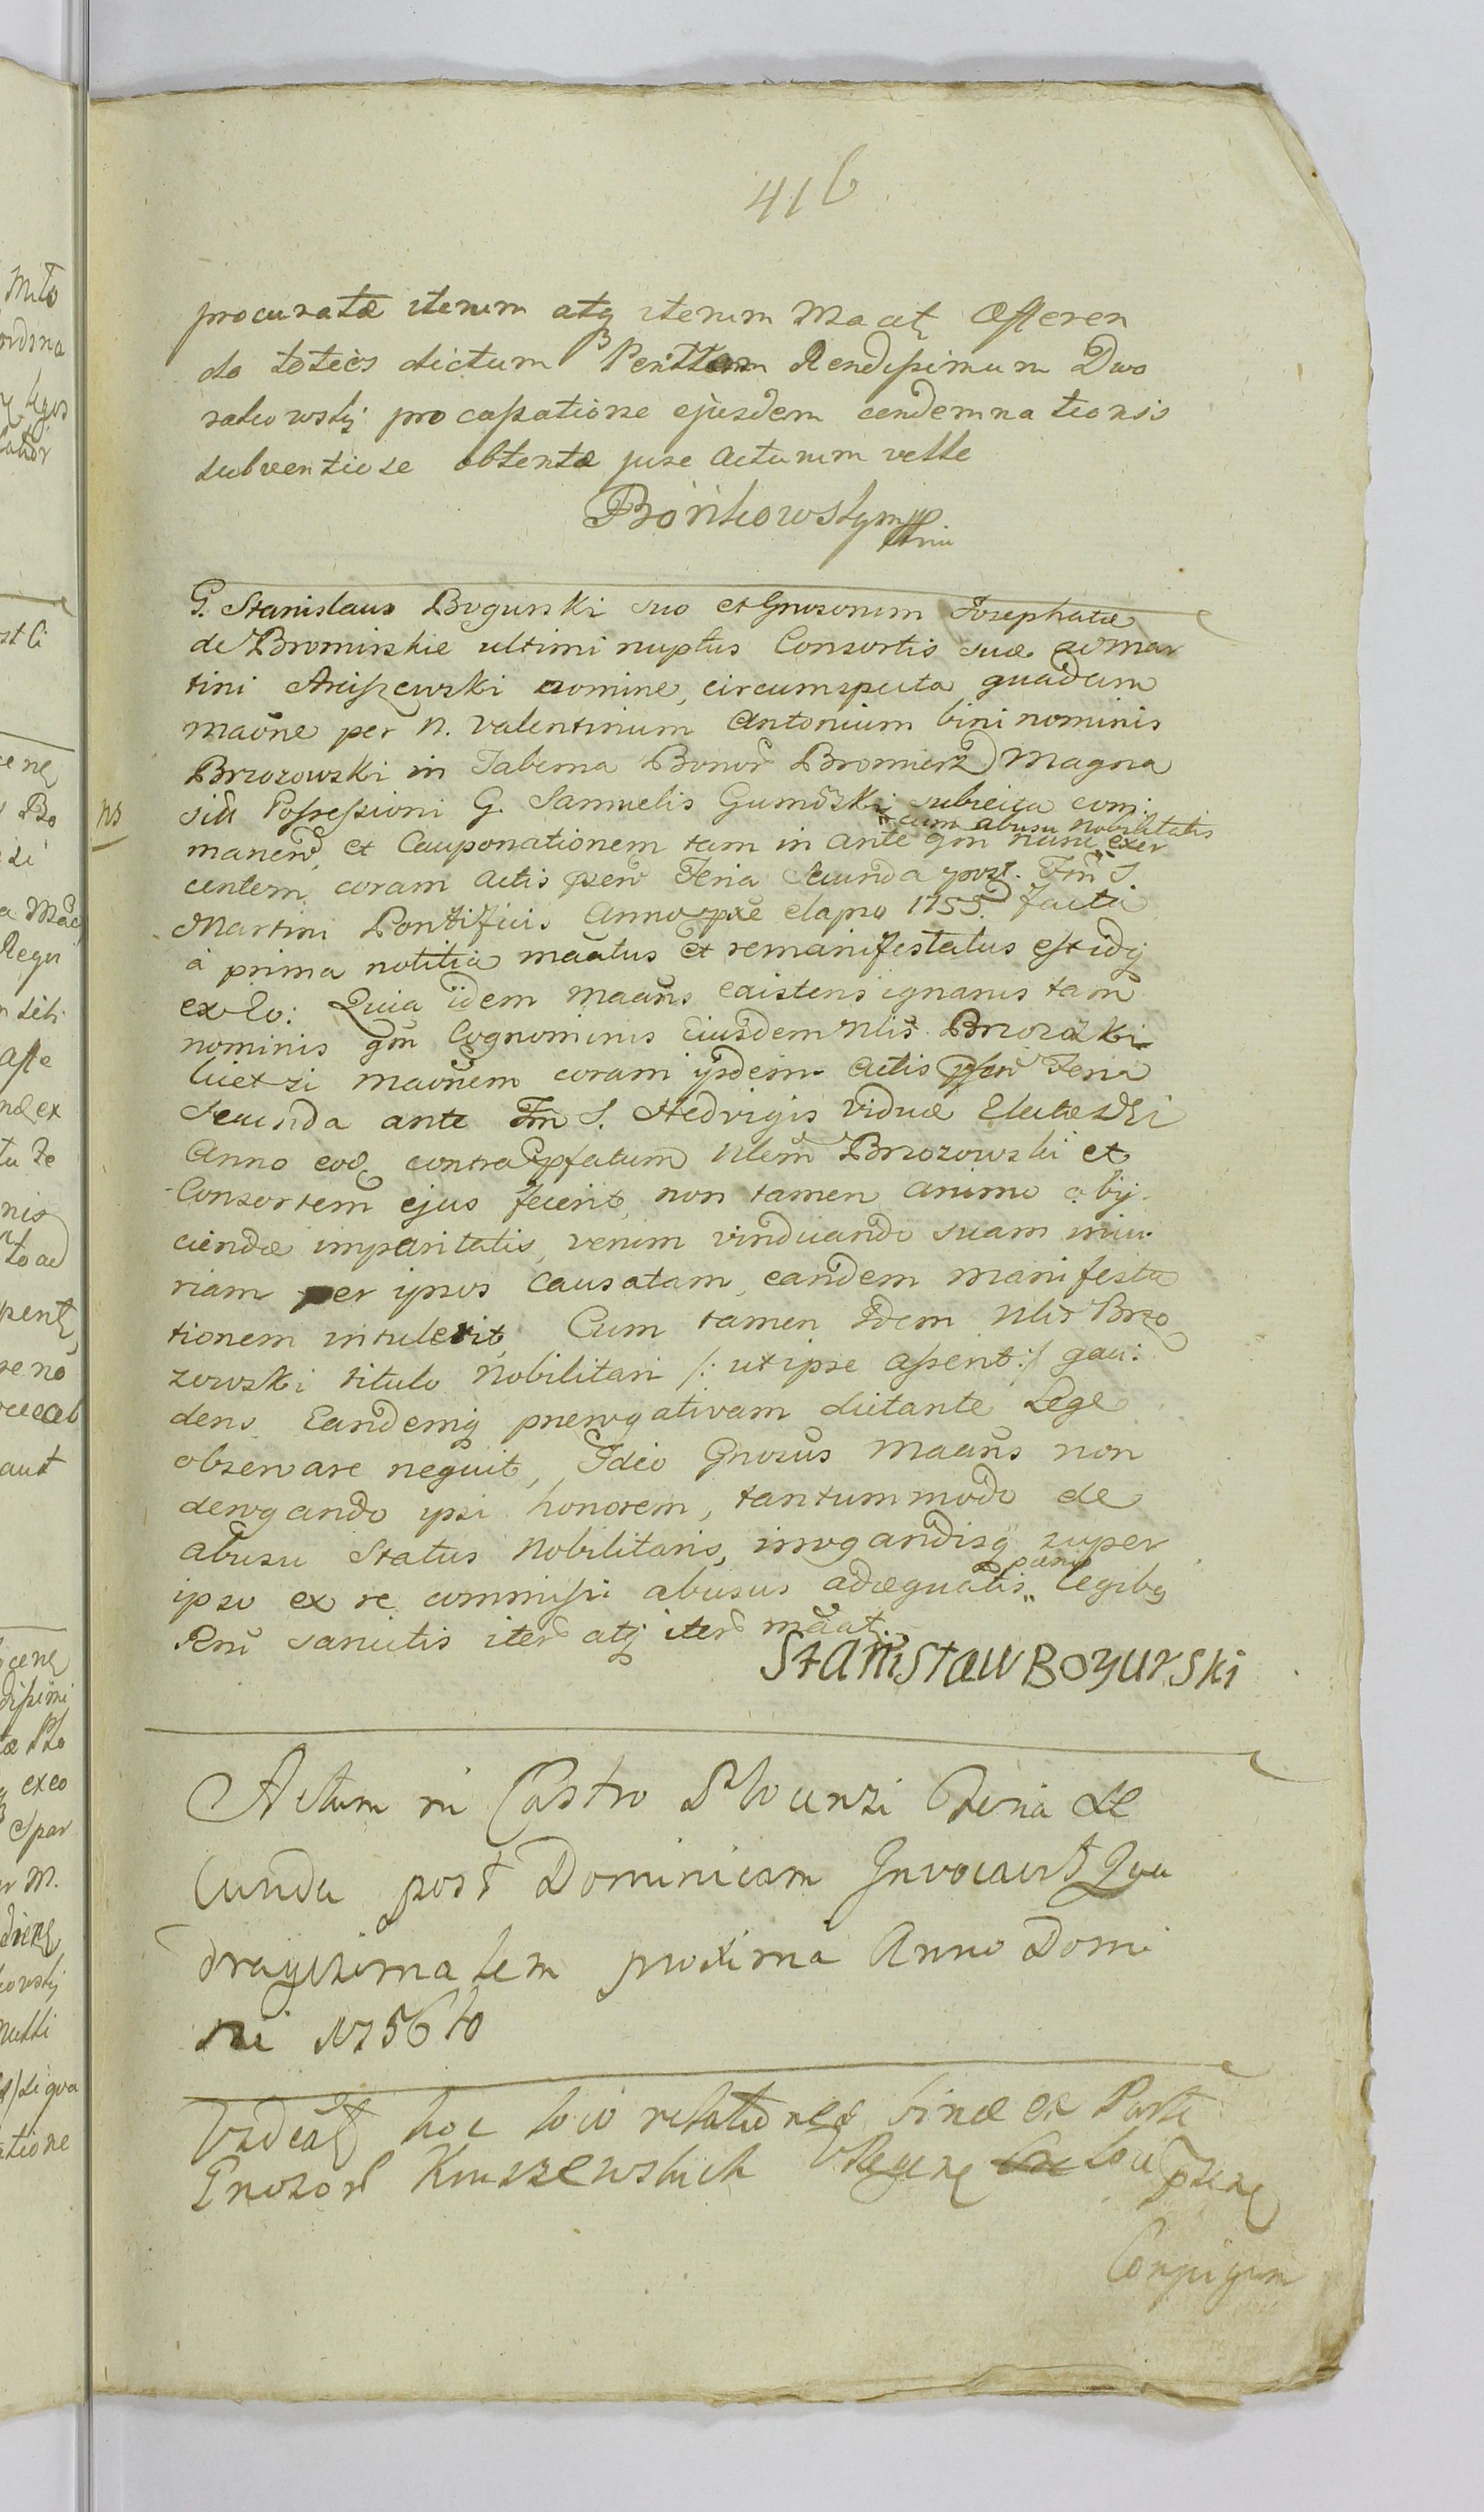 416
procuratæ iterum atq iterum Maatq Offeren
do toties dictum Rendissimum Dwo
rakowskj pro cassatione ejusdem condemnationis
subventiose obtentæ jure acturum velle
Bońkowsky mpp
G. Stanislaus Bogurski suo et Gnosorum Josephatæ
de Bromirskie ultimi nuptus Consortis suæ ac Mar
tini Arciszewski nomine, circumspecta quadam
maōne per N. Valentinum Antonium bini nominis
Brzozowski in Taberna Bonor Bromierz Magna
sitā Possessioni G. Samuelis Gumōski subiecta com:
cum abusu nobilitatis
NB
manen, et Cauponationem tam in ante qm nunc exer
centem, coram Actis psen Feria Secunda post Fm S
Martini Pontificis Anno pxe elapso 1755. facta
à prima notitia maatus et remanifestatus est idq
ex eo: Quia idem Maans existens ignarus tam
nominis qm Cognominis Eiusdem Nlis Brzozoski
licet si maōnem coram ijsdem Actis psen Feria
Secunda ante Fm S. Hedvigis Viduæ Electæ DEi
Anno eod contra pfatum Nlem Brzozowski et
Consortem ejus fecerit, non tamen animo obij
ciendæ imparitatis, verum vindicando suam iniu
riam per ipsos causatam, eandem manifesta
tionem intulerit, Cum tamen Idem Nlis Brzo
zowski titulo Nobilitari /: ut ipse asserit :/ gau:
dens Eandemq prerogativam dictante Lege
observare nequit, Ideo Gnosus Maans non
derogando ipsi honorem, tantummodo de
abusu Status Nobilitaris, irrogandisq super
pænis
ipso ex re commissi abusus adæquatis „ Legibq
Rni sancitis iter atq iter maat.
Stanisław Bogurski
Actum in Castro Plocensi Feria Se
cunda post Dominicam Invocavit Qua
dragesimalem proxima Anno Domi
ni 1756to
Videat hoc loco relationes binæ ex Parte
Gnosor Kruszewskich
Conjugum